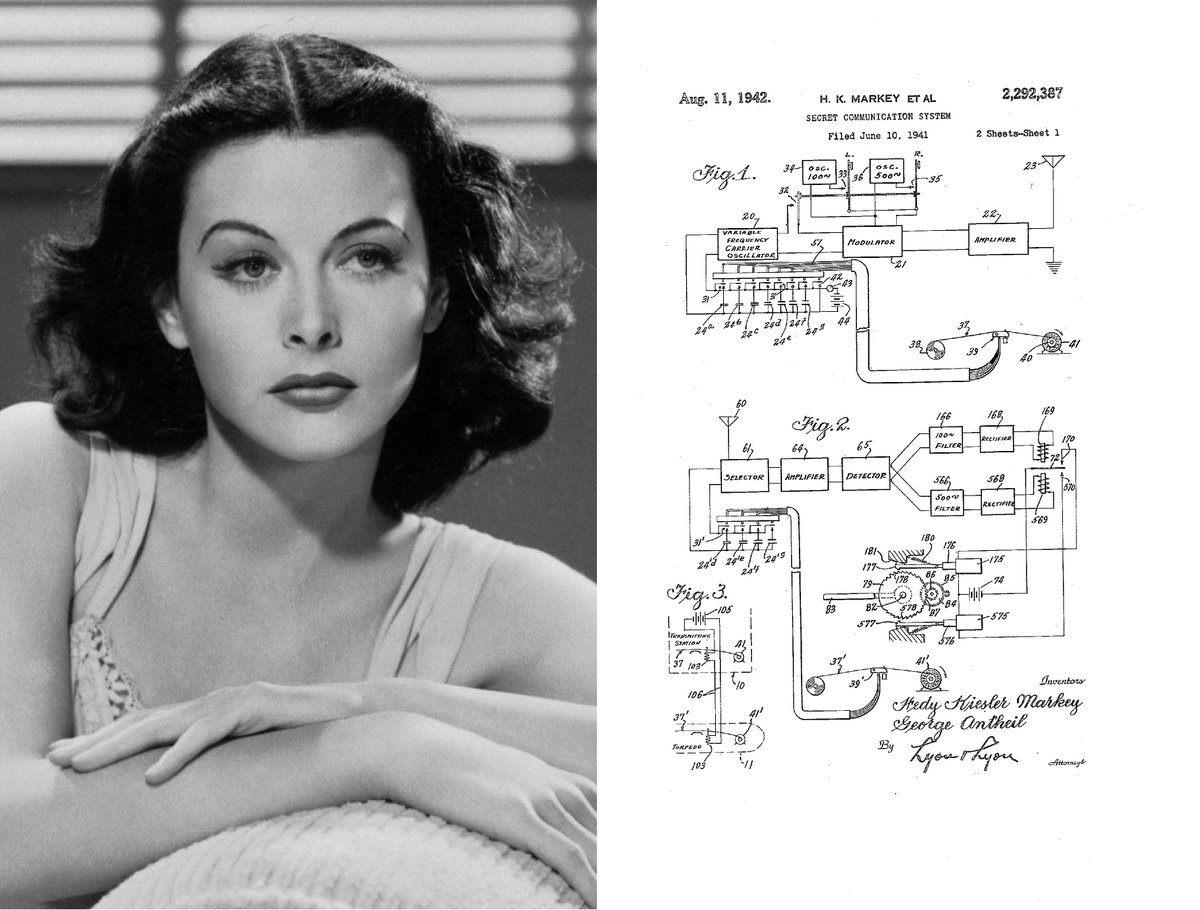 Aug. 11, 1942.
H. K. MARKEY ET AL
2,292,387
SECRET COMMUNICATION SYSTEM
Filed June 10, 1941
2 Sheets-Sheet 1
Fig. 1.
34
OSC. 100~
33
L.
36
OSC. 500~
R.
35
23
32
20
VARIABLE FREQUENCY CARRIER OSCILLATOR
51
MODULATOR
21
22
AMPLIFIER
31
31
42
43
44
24a
24b
24c
24d
24e
24f
24g
37
38
39
40
41
60
Fig. 2.
61
SELECTOR
64
AMPLIFIER
65
DETECTOR
166
100~ FILTER
168
RECTIFIER
169
170
72
566
500~ FILTER
568
RECTIFIER
569
570
31'
24'd
24'e
24'f
24'g
181
180
176
175
177
79
178
66
85
74
83
82
578
87
84
577
576
575
Fig. 3.
105
TRANSMITTING STATION
37
103
41
10
106
37'
41'
TORPEDO
103
11
37'
39'
41'
Inventors
Hedy Kiesler Markey
George Antheil
By
Lyon & Lyon
Attorneys